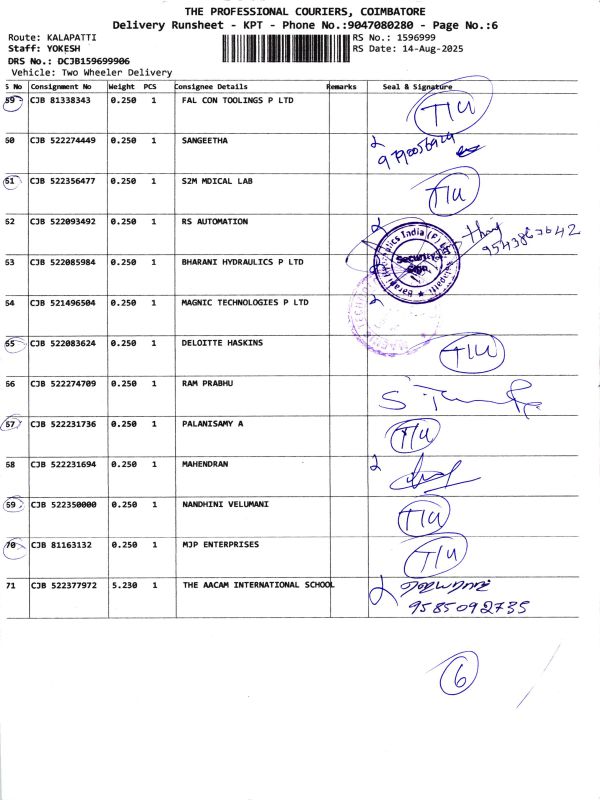 THE PROFESSIONAL COURIERS, COIMBATORE
Delivery Runsheet - KPT - Phone No.:9047080280 - Page No.:6
Route: KALAPATTI
RS No.: 1596999
Staff: YOKESH
RS Date: 14-Aug-2025
DRS No.: DCJB159699906
Vehicle: Two Wheeler Delivery
S No Consignment No Weight PCS Consignee Details Remarks Seal & Signature
59 CJB 81338343 0.250 1 FAL CON TOOLINGS P LTD T/U
60 CJB 522274449 0.250 1 SANGEETHA
61 CJB 522356477 0.250 1 S2M MDICAL LAB T/U
62 CJB 522093492 0.250 1 RS AUTOMATION
63 CJB 522085984 0.250 1 BHARANI HYDRAULICS P LTD Security Sign
64 CJB 521496504 0.250 1 MAGNIC TECHNOLOGIES P LTD
65 CJB 522083624 0.250 1 DELOITTE HASKINS T/U
66 CJB 522274709 0.250 1 RAM PRABHU
67 CJB 522231736 0.250 1 PALANISAMY A T/U
68 CJB 522231694 0.250 1 MAHENDRAN
69 CJB 522350000 0.250 1 NANDHINI VELUMANI T/U
70 CJB 81163132 0.250 1 MJP ENTERPRISES T/U
71 CJB 522377972 5.230 1 THE AACAM INTERNATIONAL SCHOOL
9585092735
6